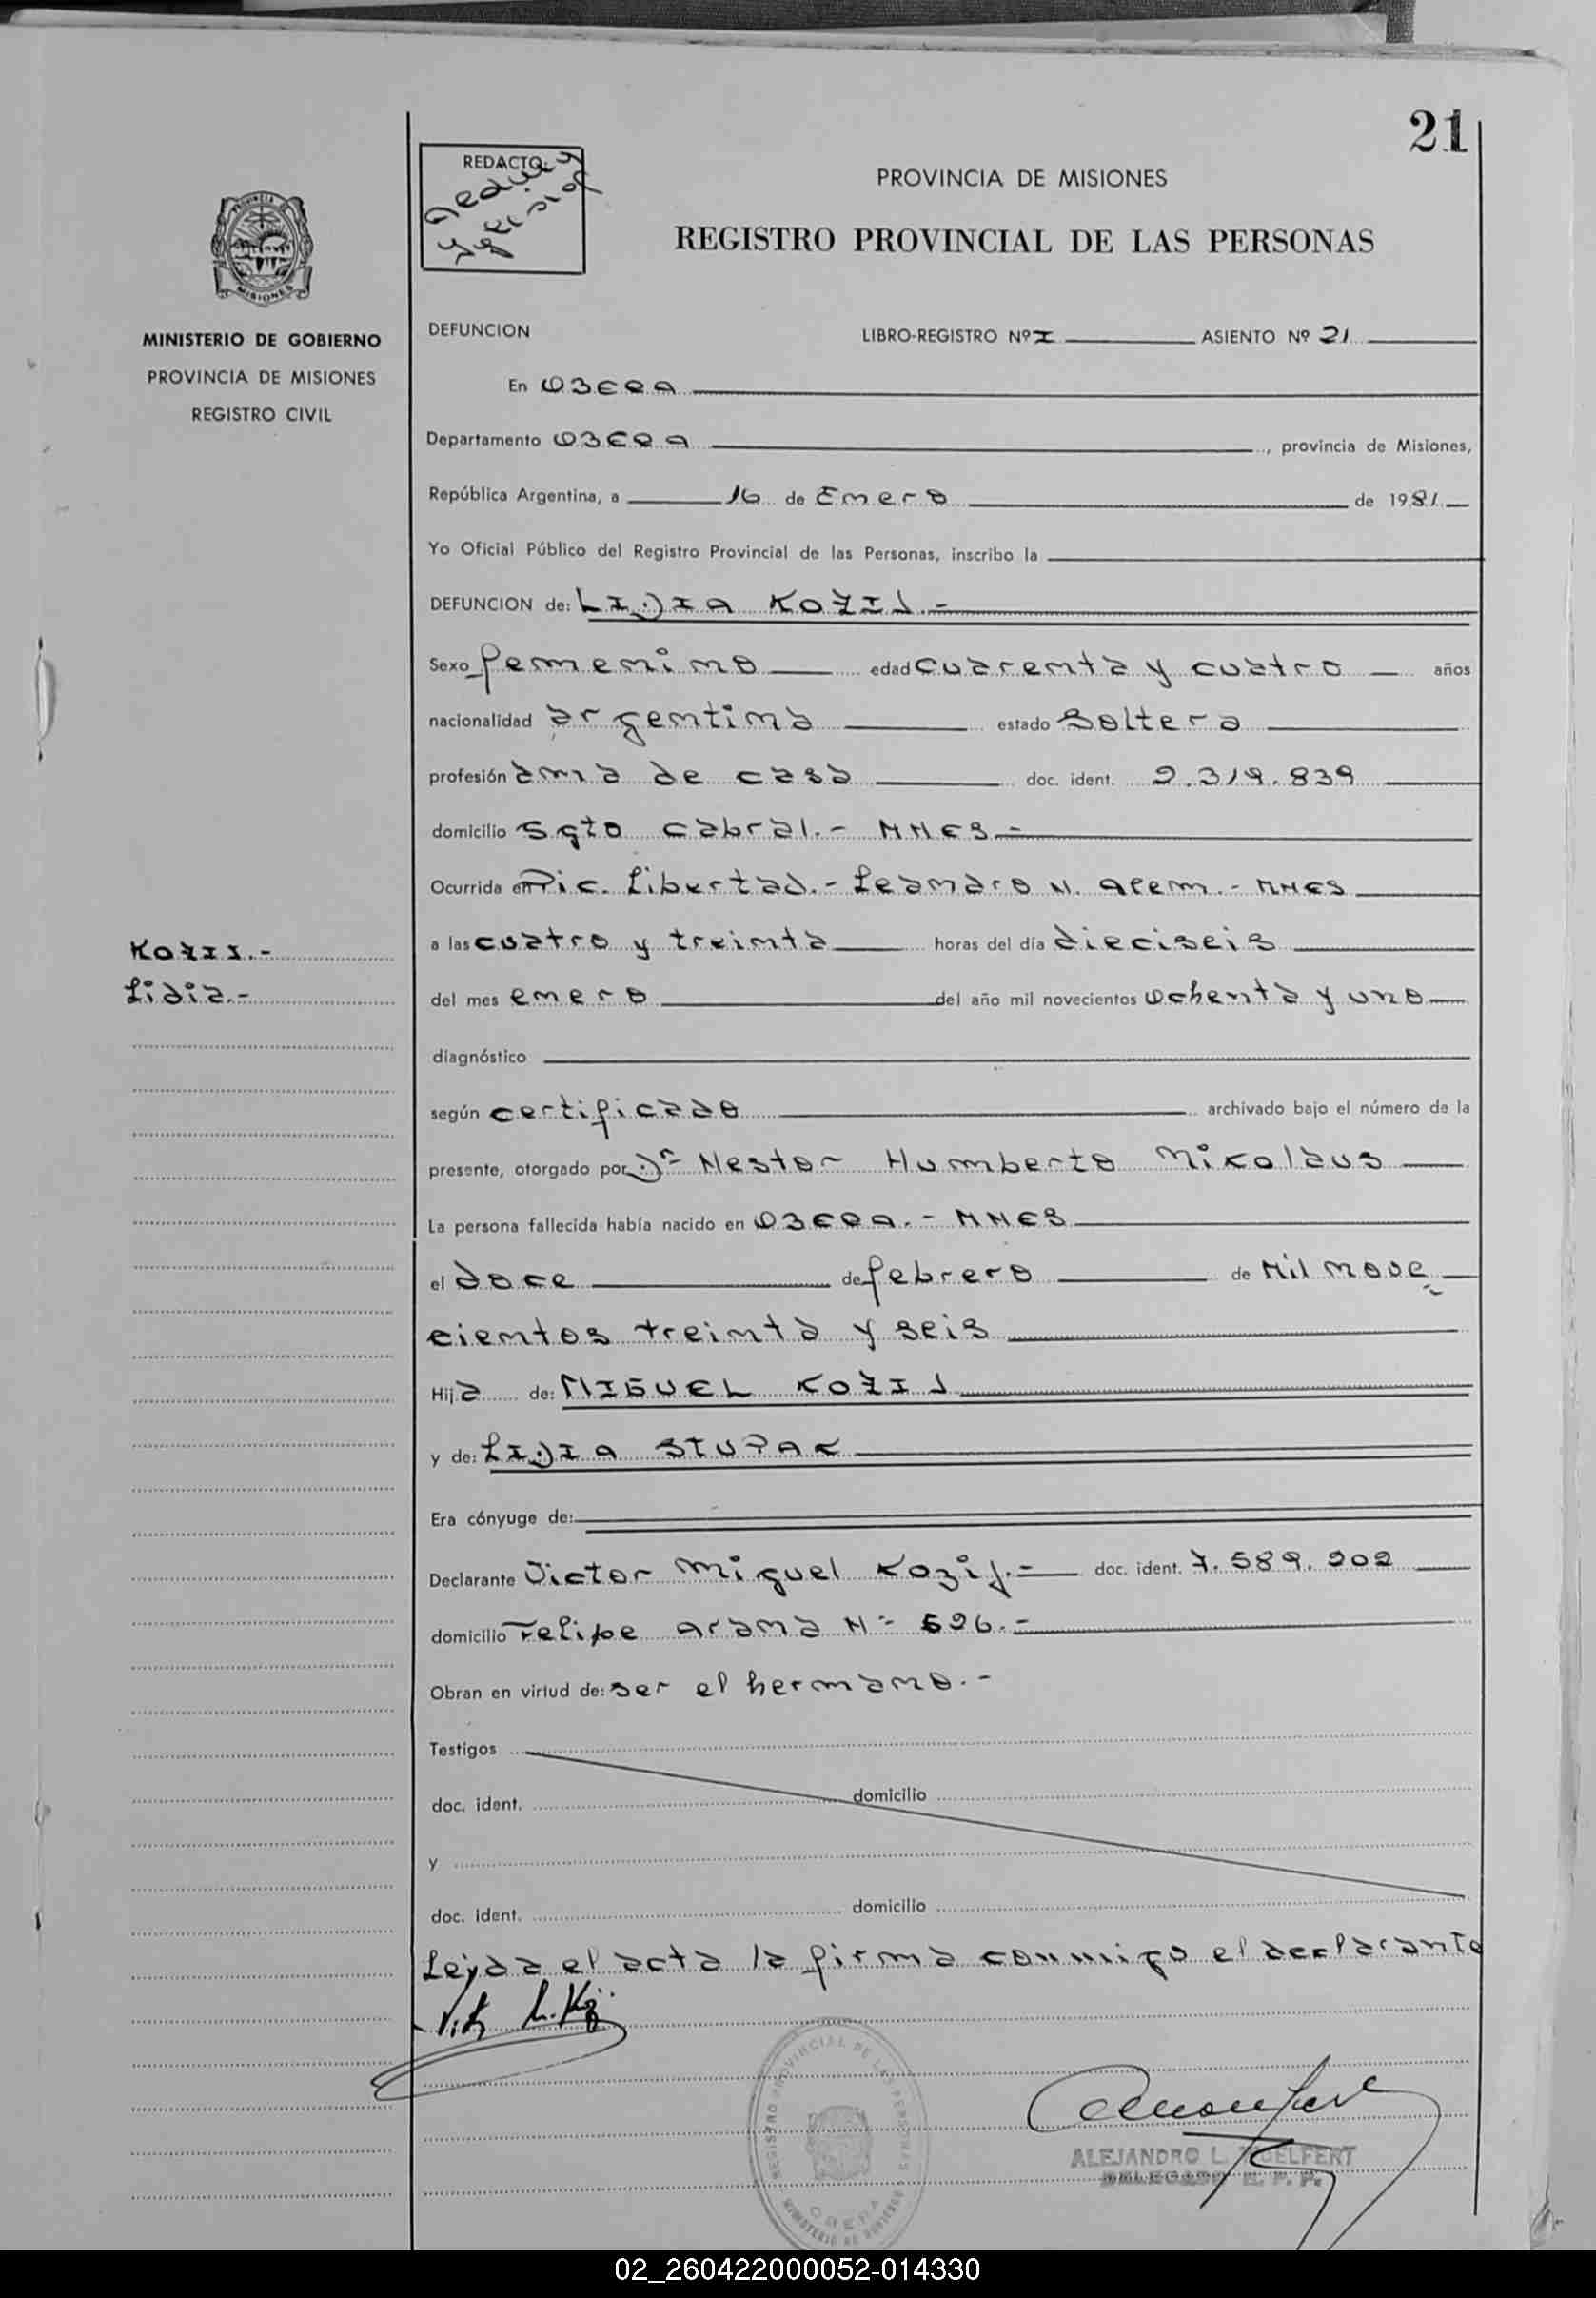 21
REDACTO:
PROVINCIA DE MISIONES
REGISTRO PROVINCIAL DE LAS PERSONAS
PROVINCIA DE
MISIONES
MINISTERIO DE GOBIERNO
PROVINCIA DE MISIONES
REGISTRO CIVIL
DEFUNCION LIBRO-REGISTRO Nº I ASIENTO Nº 21
En OBERA
Departamento OBERA, provincia de Misiones,
República Argentina, a 16 de Enero de 1981
Yo Oficial Público del Registro Provincial de las Personas, inscribo la
DEFUNCION de: LIDIA KOZIJ.-
Sexo femenino edad cuarenta y cuatro años
nacionalidad argentina estado Soltera
profesión ama de casa doc. ident. 2.319.839
domicilio Sgto Cabral.- MNES.-
Ocurrida en Pic. Libertad.- Leandro N. Alem.- MNES
a las cuatro y treinta horas del día dieciseis
del mes enero del año mil novecientos ochenta y uno
diagnóstico
según certificado archivado bajo el número de la
presente, otorgado por Dr Nestor Humberto Nikolaus
La persona fallecida había nacido en OBERA.- MNES
el doce de febrero de Mil nove
cientos treinta y seis
Hija de: MIGUEL KOZIJ
y de: LIDIA STUPAK
Era cónyuge de:
Declarante Victor Miguel Kozij.- doc. ident. 7.589.202
domicilio Felipe Arana Nº 526.-
Obran en virtud de: ser el hermano.-
Testigos
doc. ident. domicilio
y
doc. ident. domicilio
Leyda el acta la firma conmigo el declarante
KOZIJ.-
Lidia.-
REGISTRO PROVINCIAL DE LAS PERSONAS
OBERA
MINISTERIO DE GOBIERNO
ALEJANDRO L.
DELEGADO R. P. P.
02_260422000052-014330